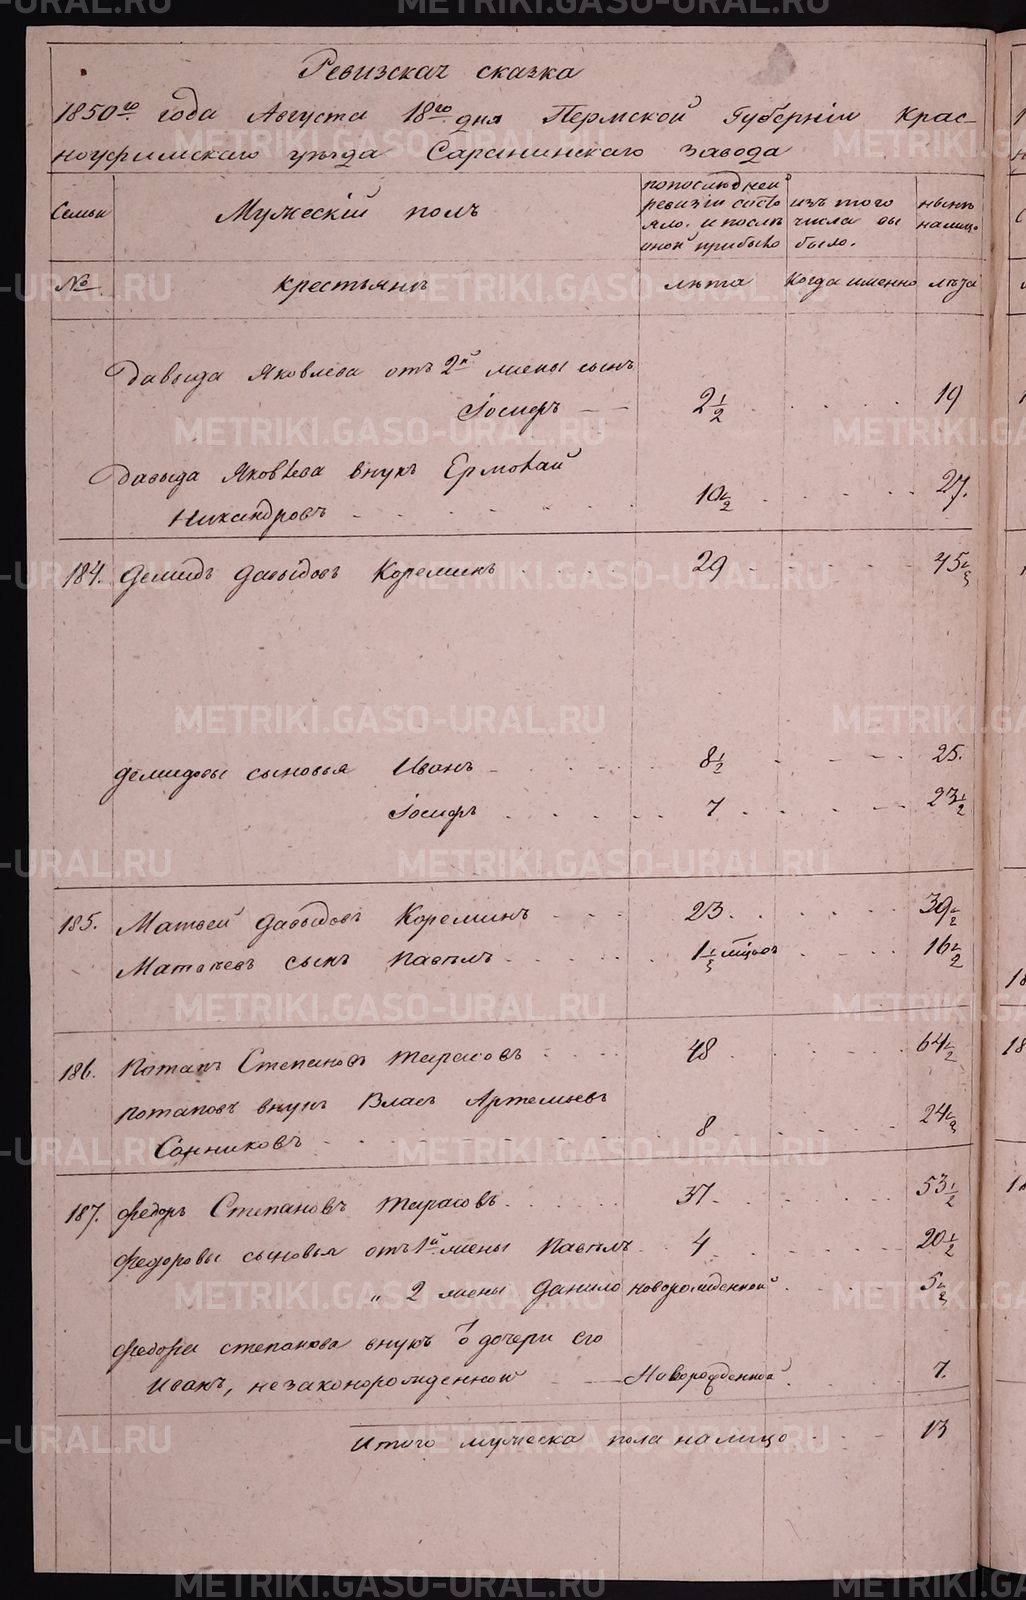 Ревизская сказка
1850го года Августа 18го дня Пермской Губернiи Крас-
ноуфимскаго уѣзда Саранинскаго завода
Семьи
Мужескiй полъ
по последней ревизiи состояло и послѣ оной прибыло
изъ того числа выбыло.
нынѣ налицо
№
крестьянъ
лѣта
Когда именно
лѣта
Давыда Яковлева отъ 2й жены сынъ
Iосифъ 2½ 19
Давыда Яковлева внукъ Ермолай
Никандровъ 10½ 27.
184. Демидъ Давыдовъ Кореминъ 29 45½
Демидовы сыновья Иванъ 8½ 25.
Iосифъ 7 23½
185. Матвей Давыдовъ Кореминъ 23. 39½
Матвеевъ сынъ Павелъ 1½ мѣцовъ 16½
186. Потапъ Степановъ Тарасовъ 48 64½
Потаповъ внукъ Власъ Артемьевъ
Санниковъ 8 24½
187. Федоръ Степановъ Тарасовъ 37 53½
Федоровы сыновья отъ 1й жены Павелъ 4 20½
" 2 жены Данило новорожденной 5½
Федора Степанова внукъ о дочери его
Иванъ, незаконорожденной Новорожденной 7.
Итого мужеска пола налицо 13
METRIKI.GASO-URAL.RU